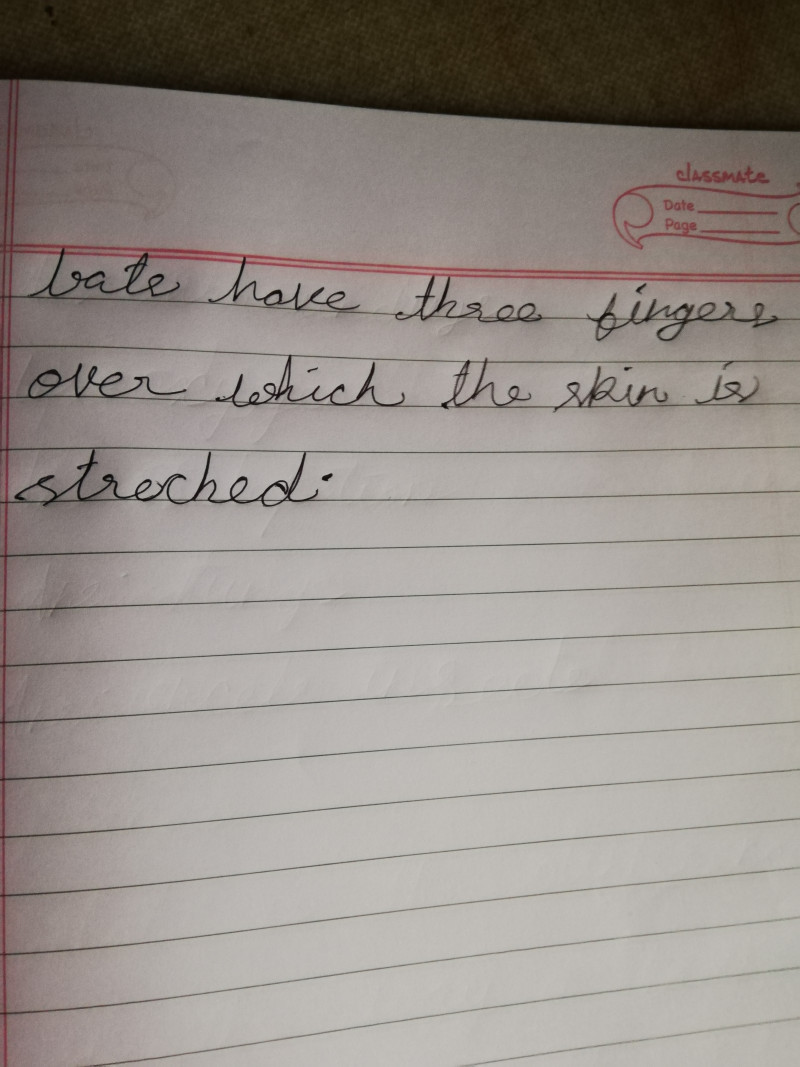 classmate
Date
Page
bats have three fingers
over which the skin is
streched.